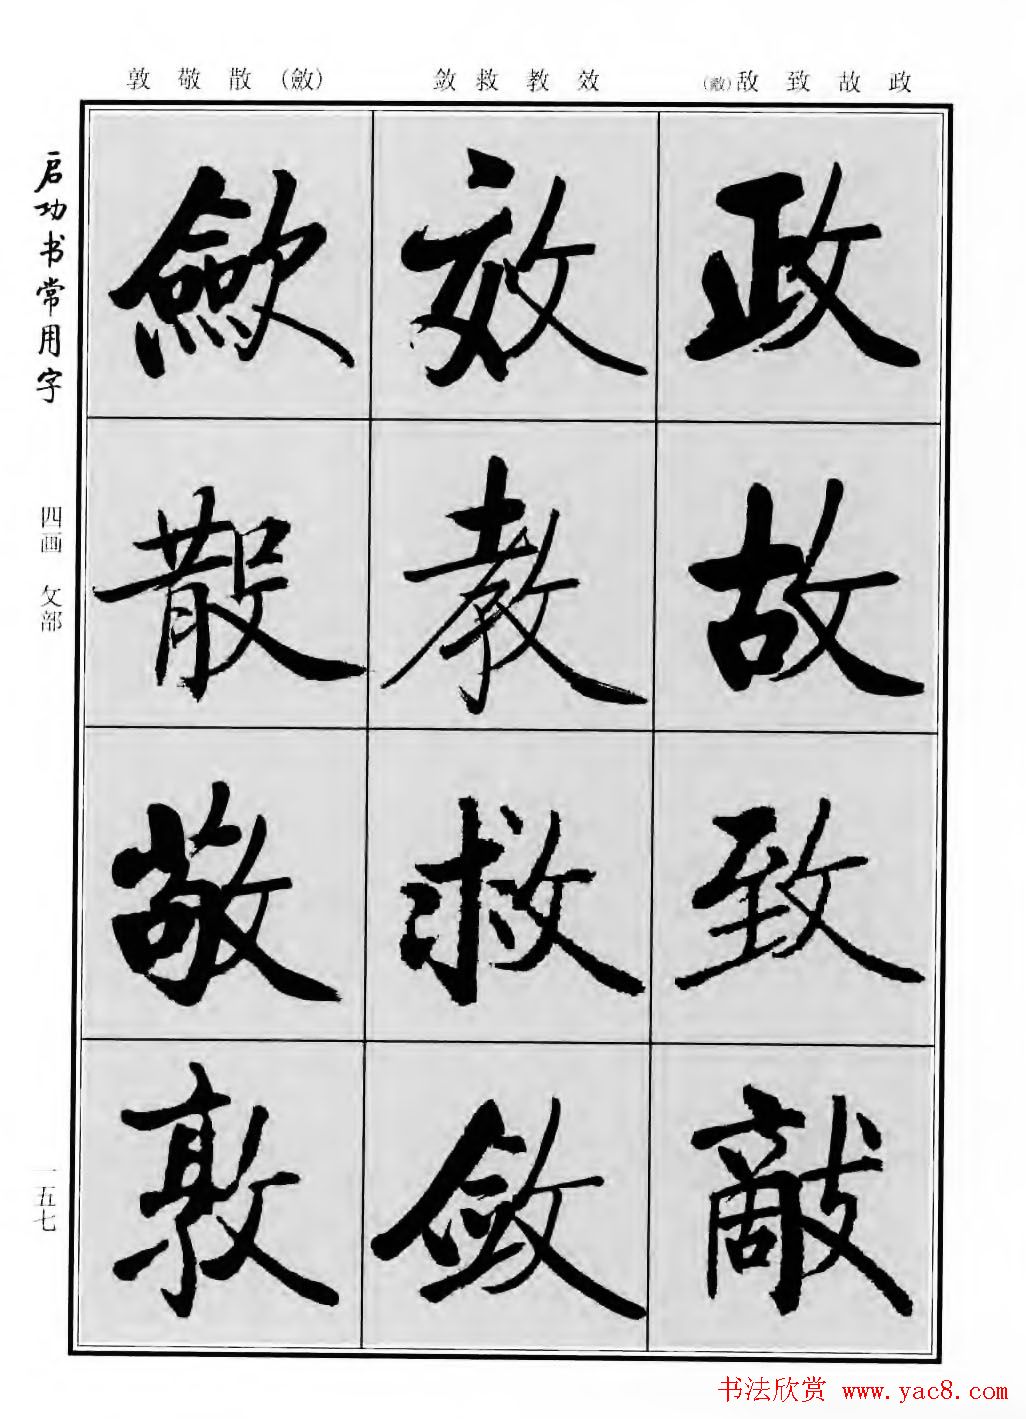 政 故 致 敌(敵)
效 教 救 敛
(斂) 散 敬 敦
启功书常用字
四画 攵部
一五七
政
故
致
敵
效
教
救
敛
斂
散
敬
敦
书法欣赏 www.yac8.com